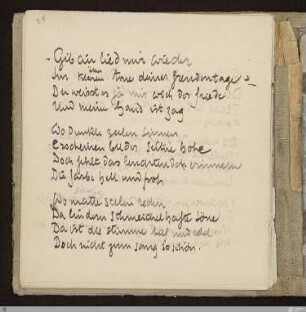 Gib ein lied mir wieder
Im tone deiner freudentage
Du weisst es ja mir wich der friede
Und meine hand ist zag

Wo dunkle seelen sinnen
Erscheinen bilder seltne hohe
Doch fehlt das leuchtende erinnern
Die farbe hell und froh

Wo matte seelen reden
Da lindern schmeichelhafte töne
Da ist die stimme tief und edel
Doch nicht zum sang so schön.